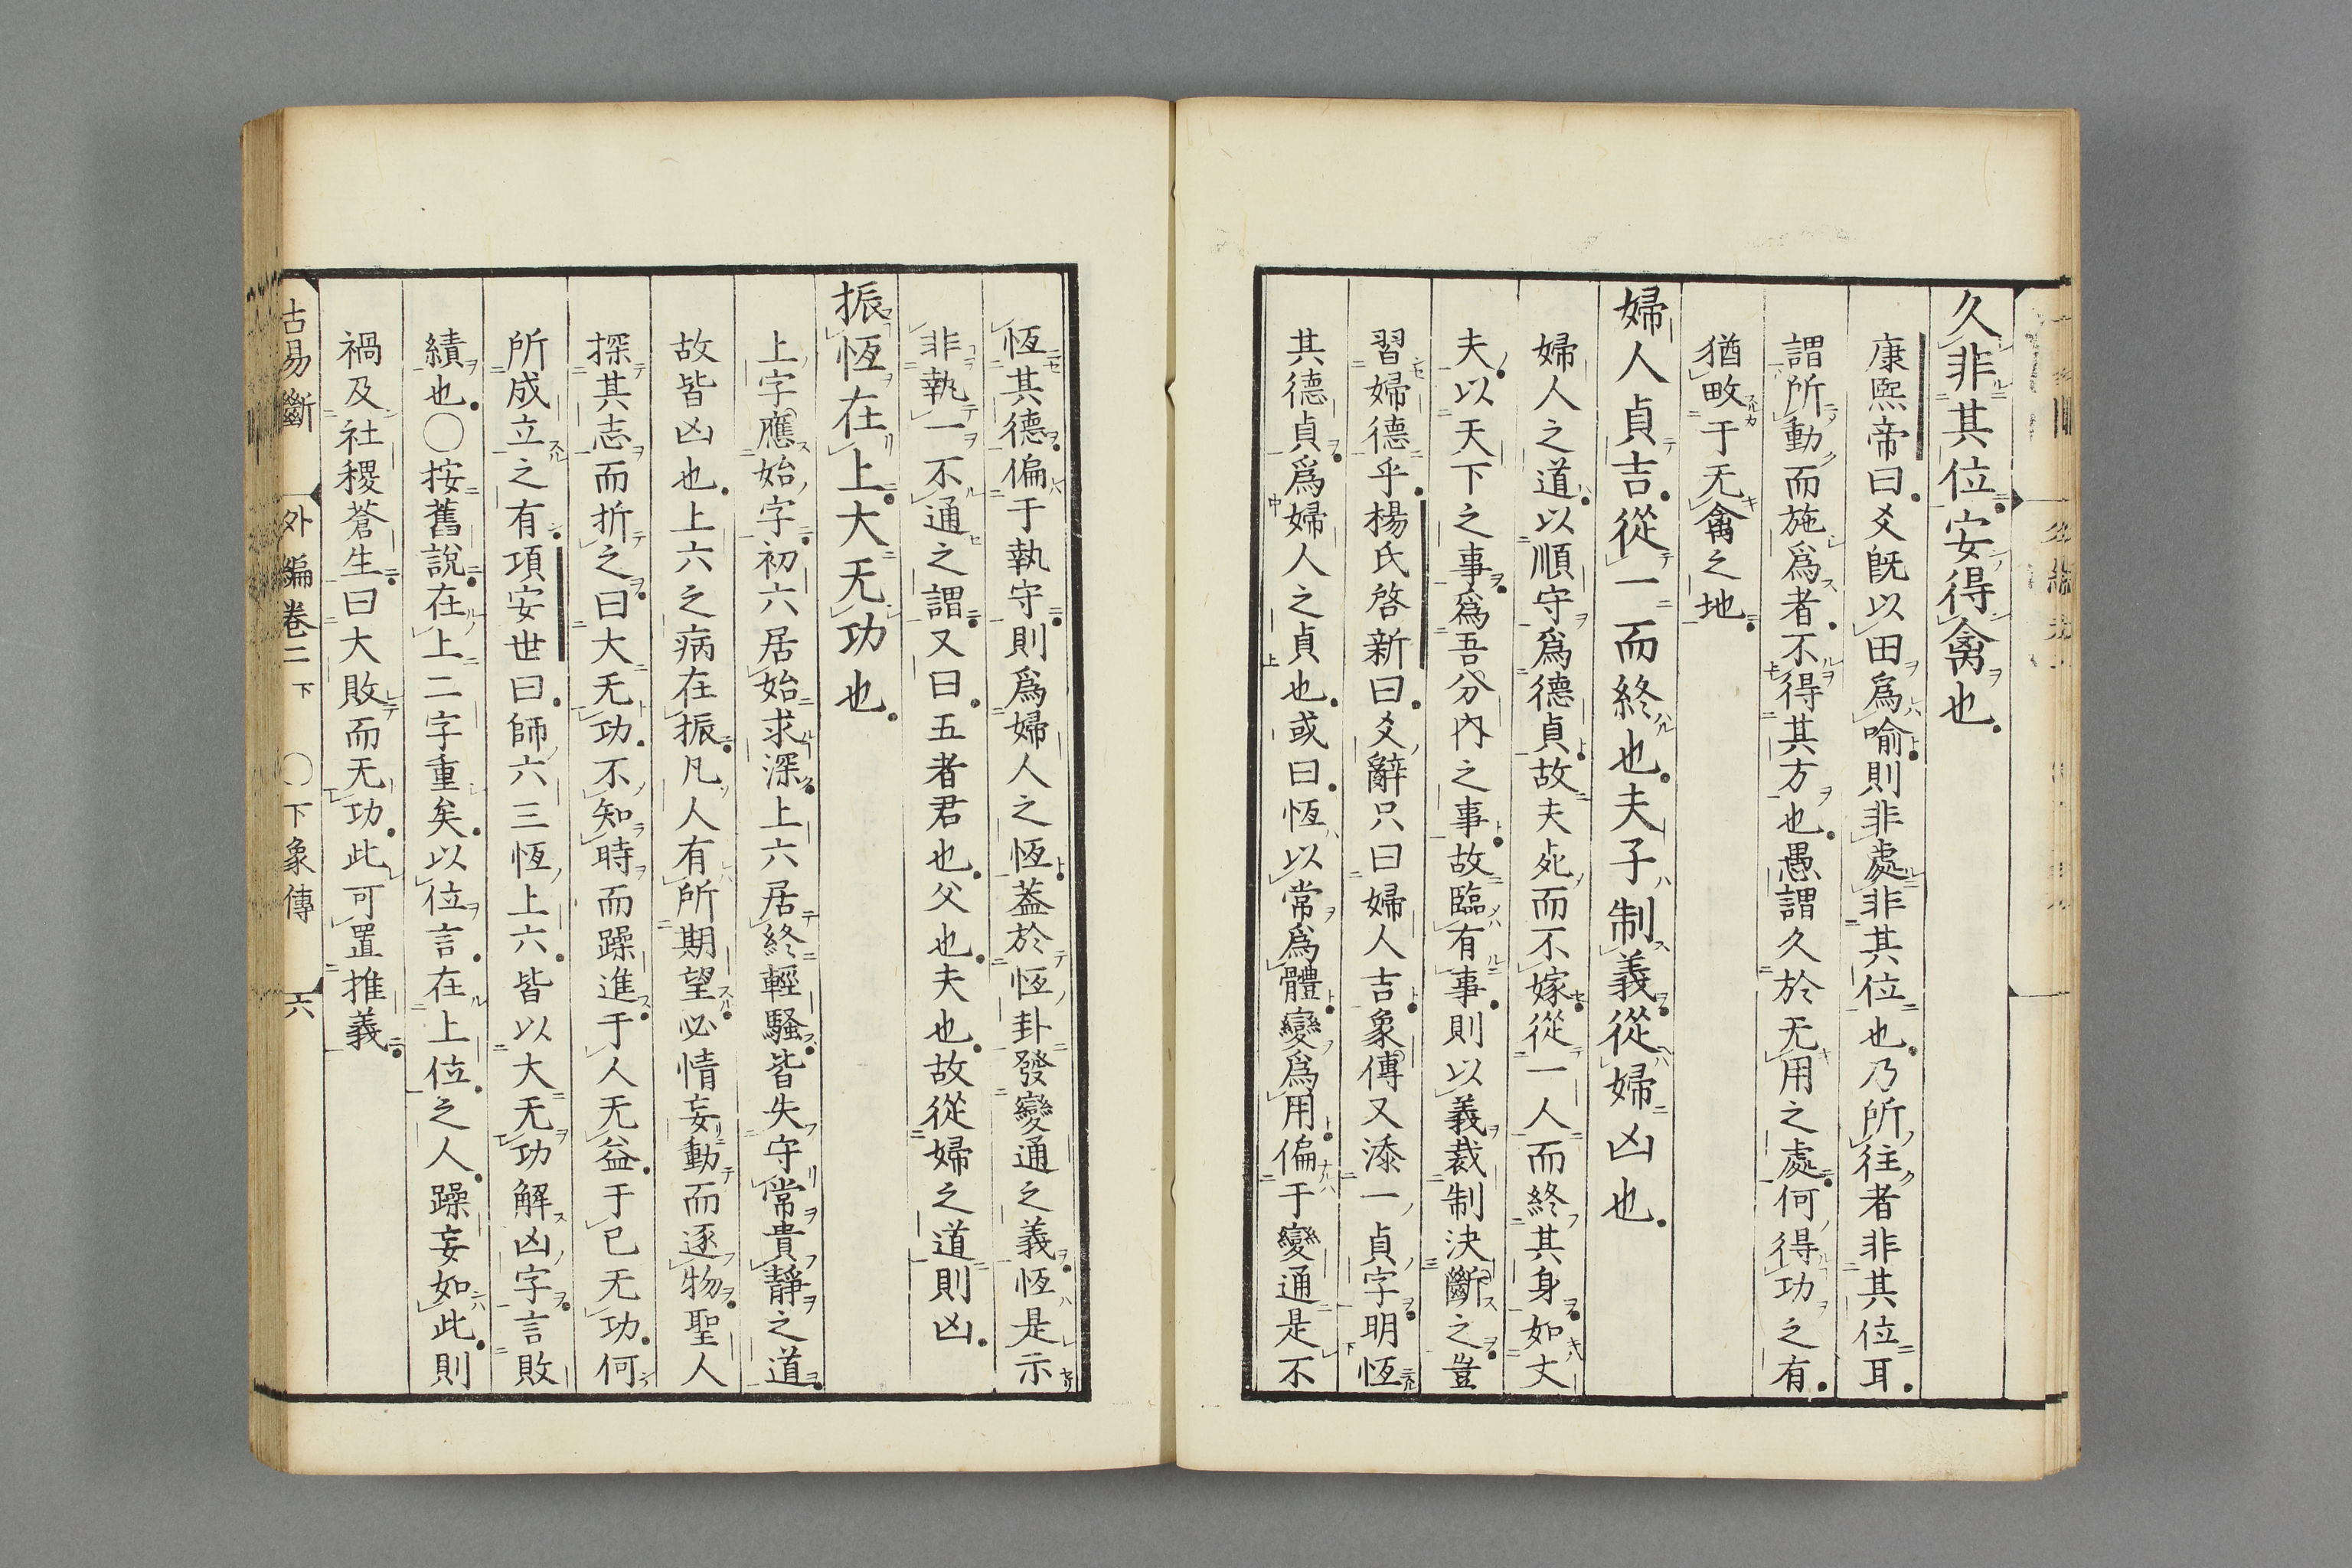 久非其位安得禽也
康熙帝曰爻旣以田爲喻則非處非其位也乃所往者非其位耳
謂所動而施爲者不得其方也愚謂久於无用之處何得功之有
猶畋于无禽之地
婦人貞吉從一而終也夫子制義從婦凶也
婦人之道以順守爲德貞故夫死而不嫁從一人而終其身如丈
夫以天下之事爲吾分內之事故臨有事則以義裁制決斷之豈
習婦德乎楊氏啓新曰爻辭只曰婦人吉象傳又添一貞字明恆
其德貞爲婦人之貞也或曰恆以常爲體變爲用偏于變通是不
恆其德偏于執守則爲婦人之恆蓋於恆卦發變通之義恆是示
非執一不通之謂又曰五者君也父也夫也故從婦之道則凶
振恆在上大无功也
上字應始字初六居始求深上六居終輕騷皆失守常貴靜之道
故皆凶也上六之病在振凡人有所期望必情妄動而逐物聖人
探其志而折之曰大无功不知時而躁進于人无益于已无功何
所成立之有項安世曰師六三恆上六皆以大无功解凶字言敗
績也○按舊說在上二字重矣以位言在上位之人躁妄如此則
禍及社稷蒼生曰大敗而无功此可置推義
古易斷 外編卷二下 ○下象傳 六